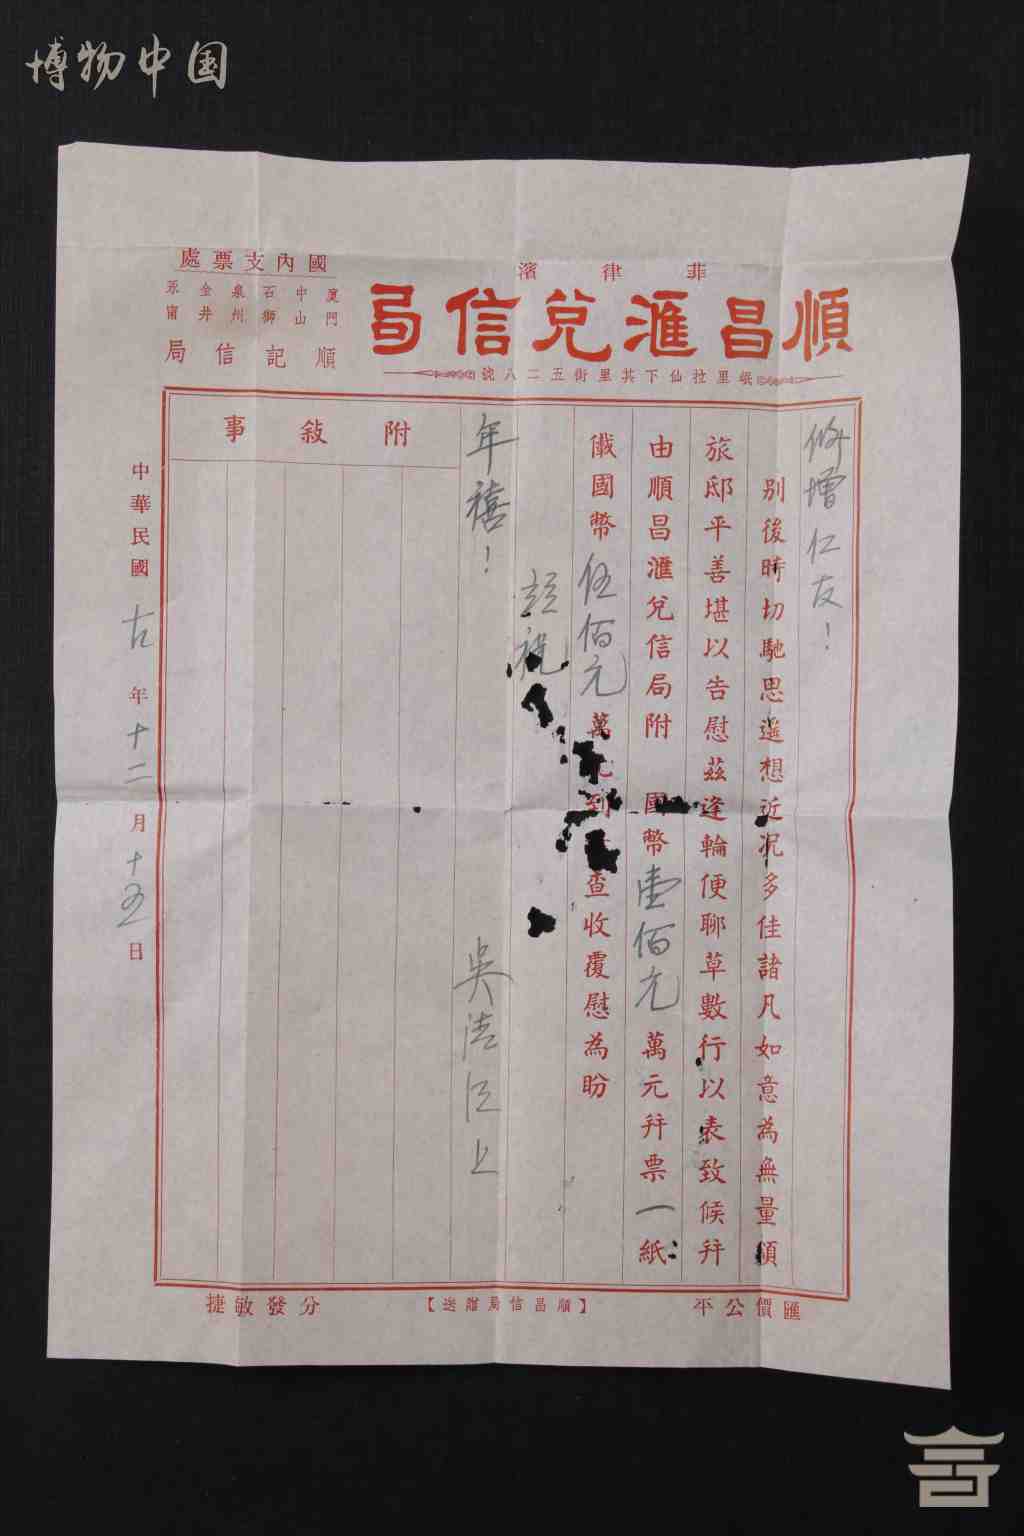 博物中国
菲律濱
順昌滙兌信局
岷里拉仙下其里街五二八號
國內支票處
廈門 中山 石獅 泉州 金井 永甯
順記信局
修增仁友！
別後時切馳思遙想近况多佳諸凡如意為無量頌
旅邸平善堪以告慰茲逢輪便聊草數行以表致候幷
由順昌滙兌信局附 國幣壹佰元萬元幷票一紙
儎國幣伍佰元萬元到 查收覆慰為盼
祝
年禧！
吳 上
附敍事
中華民國 年十二月十五日
匯價公平
【順昌信局贈送】
分發敏捷